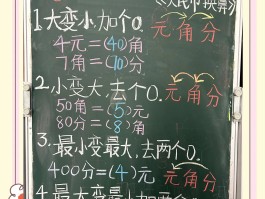 《人民币换算》
1.大变小,加个0.
元角分
4元=(40)角
7角=(70)分
2.小变大,去个0.
元角分
50角=(5)元
80分=(8)角
3.最小变最大,去两个0.
400分=(4)元
元角分
4.最大变最小加两个0